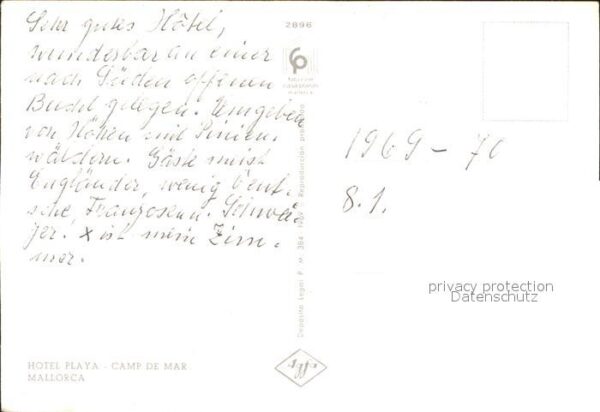 Sehr gutes Hotel,
wunderbar an einer
nach Süden offenen
Bucht gelegen. Umgeben
von Höhen mit Pinien-
wäldern. Gäste meist
Engländer, wenig Deut-
sche, Franzosen u. Schwei-
zer. x ist mein Zim-
mer.
2896
casa planas
1969 - 70
8.1.
Deposito Legal P. M. 384 Reproducción prohibida
privacy protection
Datenschutz
HOTEL PLAYA - CAMP DE MAR
MALLORCA
Agfa